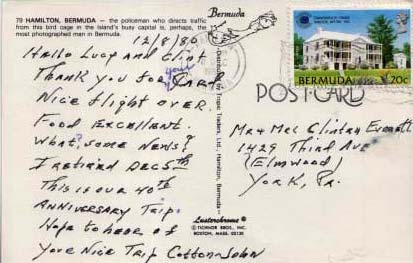 79 HAMILTON, BERMUDA — the policeman who directs traffic
from this bird cage in the island's busy capital is, perhaps, the
most photographed man in Bermuda.
Bermuda
12/8/80
Hello Lucy and Clint
Thank you for your Card
Nice flight over.
Food Excellent.
What, some News?
I retired Dec 5th
This is our 40th
ANNIVERSARY Trip.
Hope to hear of
Your Nice Trip Cotton-John
Distributed by Tropic Traders, Ltd., Hamilton, Bermuda
Lusterchrome®
© TICHNOR BROS., INC.
BOSTON, MASS. 02135
BERMUDA 20c
POST CARD
Mr + Mrs Clinton Everett
1429 Third Ave
(Elmwood)
York, Pa.